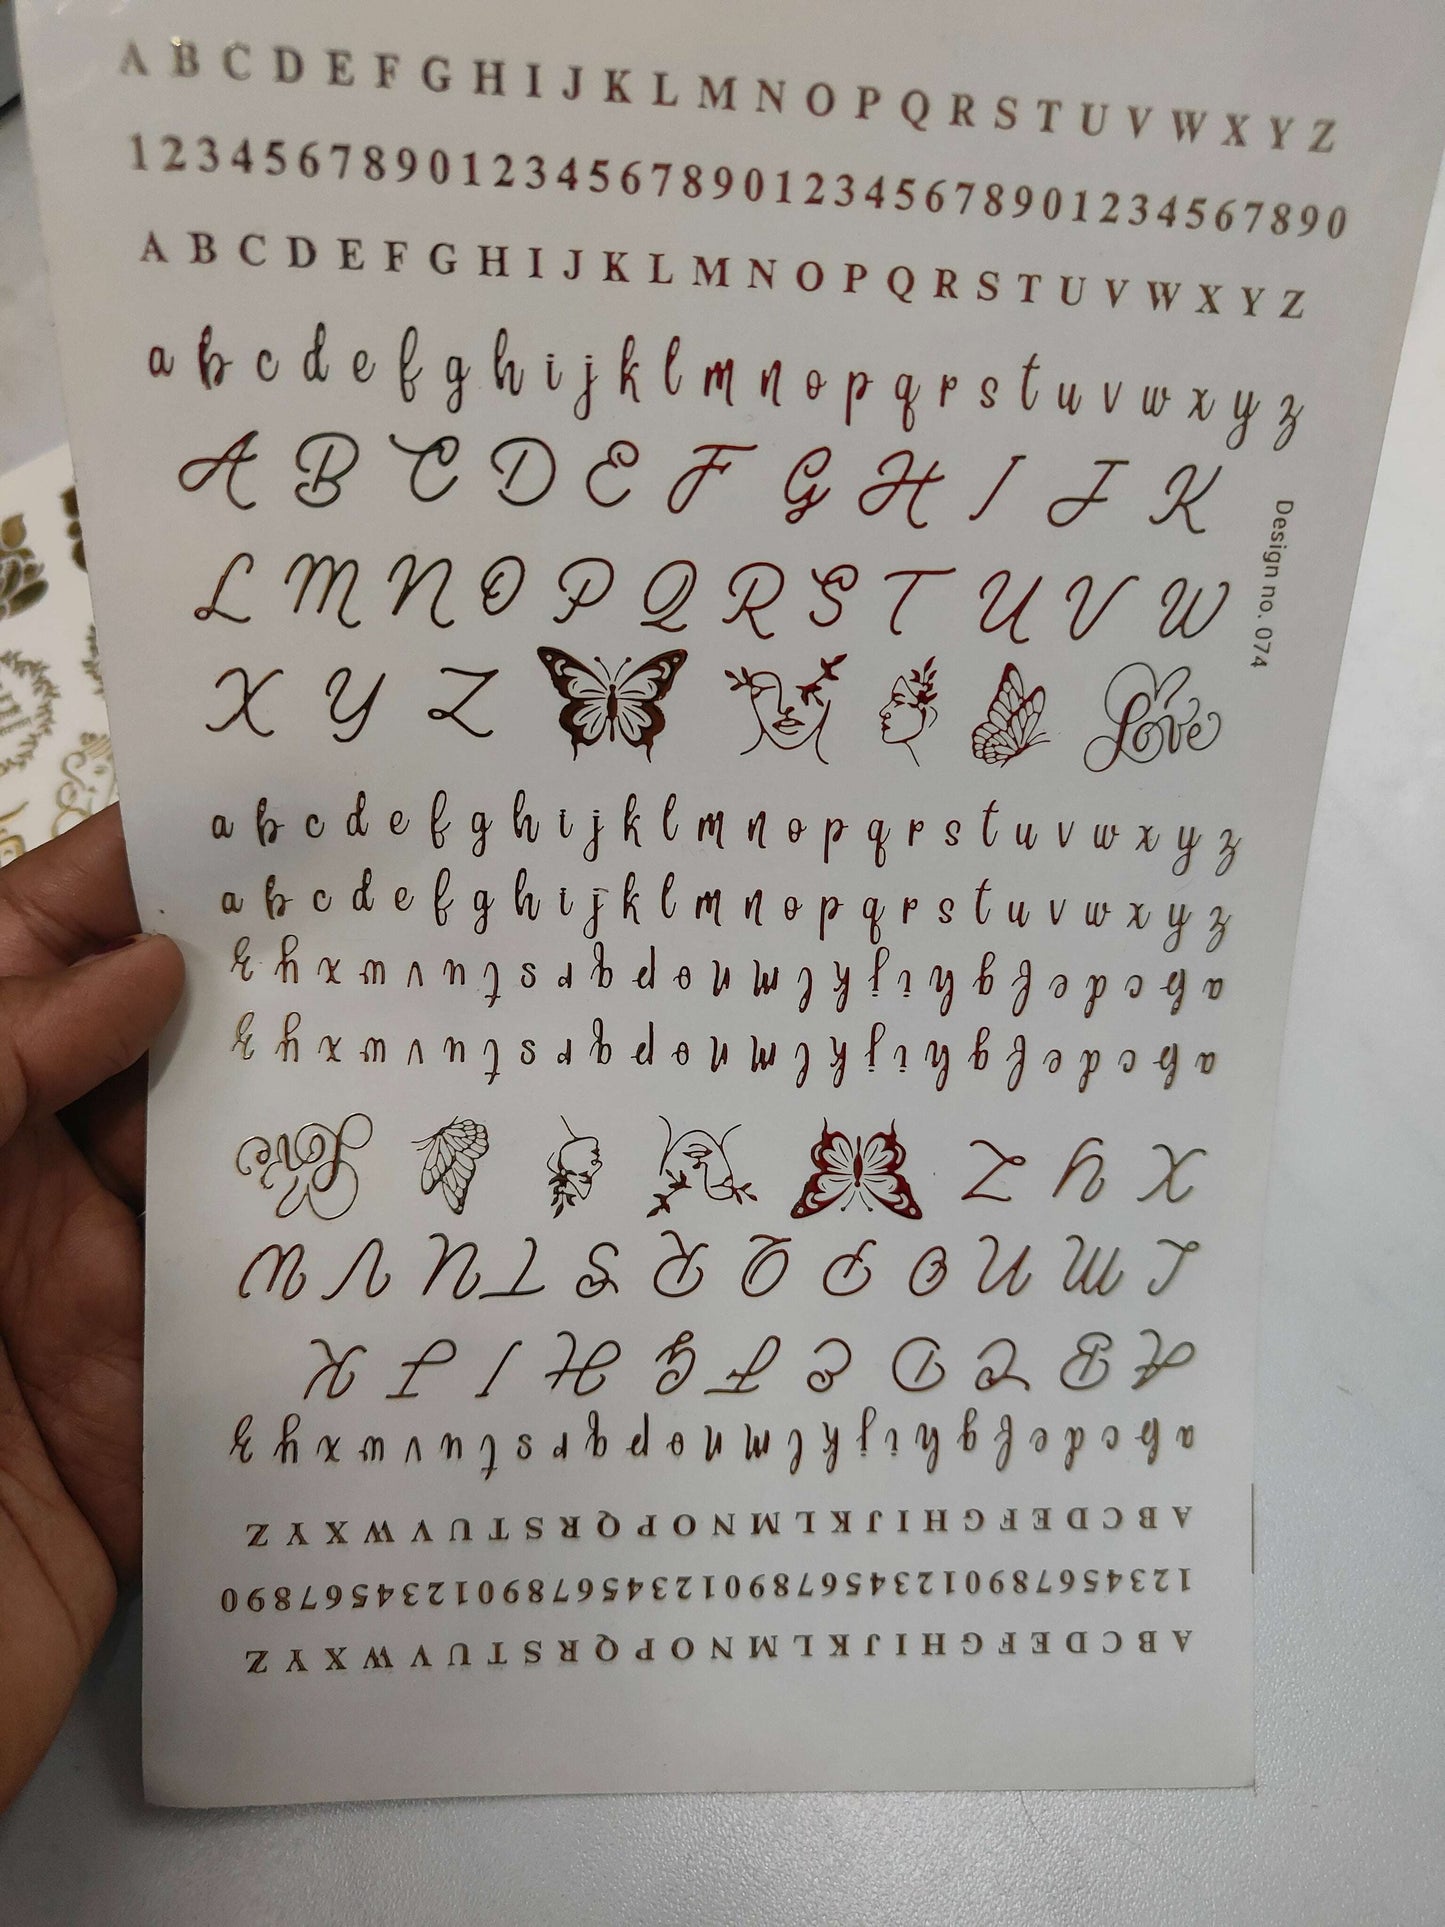 A B C D E F G H I J K L M N O P Q R S T U V W X Y Z
1 2 3 4 5 6 7 8 9 0 1 2 3 4 5 6 7 8 9 0 1 2 3 4 5 6 7 8 9 0 1 2 3 4 5 6 7 8 9 0
A B C D E F G H I J K L M N O P Q R S T U V W X Y Z
a b c d e f g h i j k l m n o p q r s t u v w x y z
A B C D E F G H I J K
L M N O P Q R S T U V W
X Y Z Love
Design no. 074
a b c d e f g h i j k l m n o p q r s t u v w x y z
a b c d e f g h i j k l m n o p q r s t u v w x y z
A B C D E F G H I J K L M N O P Q R S T U V W X Y Z
1 2 3 4 5 6 7 8 9 0 1 2 3 4 5 6 7 8 9 0 1 2 3 4 5 6 7 8 9 0 1 2 3 4 5 6 7 8 9 0
A B C D E F G H I J K L M N O P Q R S T U V W X Y Z
a b c d e f g h i j k l m n o p q r s t u v w x y z
A B C D E F G H I J K
L M N O P Q R S T U V W
X Y Z Love
a b c d e f g h i j k l m n o p q r s t u v w x y z
a b c d e f g h i j k l m n o p q r s t u v w x y z